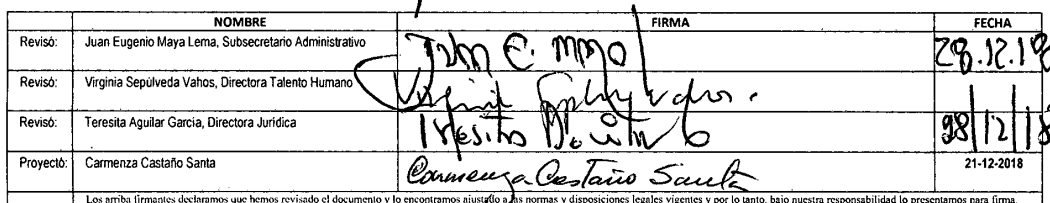 NOMBRE FIRMA FECHA
Revisó: Juan Eugenio Maya Lema, Subsecretario Administrativo Juan E. Maya 28.12.18
Revisó: Virginia Sepúlveda Vahos, Directora Talento Humano Virginia Sepúlveda Vahos.
Revisó: Teresita Aguilar García, Directora Jurídica Teresita Aguilar G 28/12/18
Proyectó: Carmenza Castaño Santa Carmenza Castaño Santa 21-12-2018
Los arriba firmantes declaramos que hemos revisado el documento y lo encontramos ajustado a las normas y disposiciones legales vigentes y por lo tanto, bajo nuestra responsabilidad lo presentamos para firma.